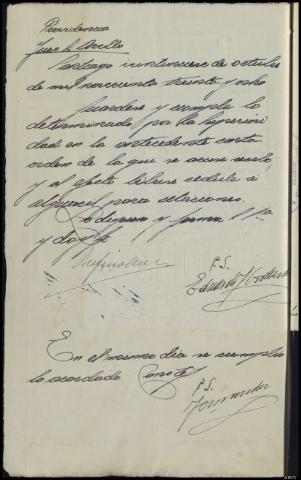 Providencia
Juez Sr.
Santiago veintinueve de octubre
de mil novecientos treinta y ocho
Guardese y cumplase lo
determinado por la Superiori
dad en la antecedente carta
orden de la que se acuse recibo,
y al efecto librese cedula á
alguacil para citaciones.
Lo dispuso y firma S Sª
y doy fé
P. S.
Eduardo
En el mismo dia se cumplio
lo acordado Conste
P. S.
Fernandez